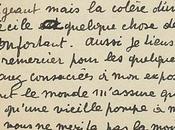 igeant mais la colère di
écile et quelque chose de
onfortant. Aussi je tiens
remercier pour les quelques
consacrées à mon expo
t le monde m'assure qu
qu'une vieille pompe à m
nous ne mérite pas la